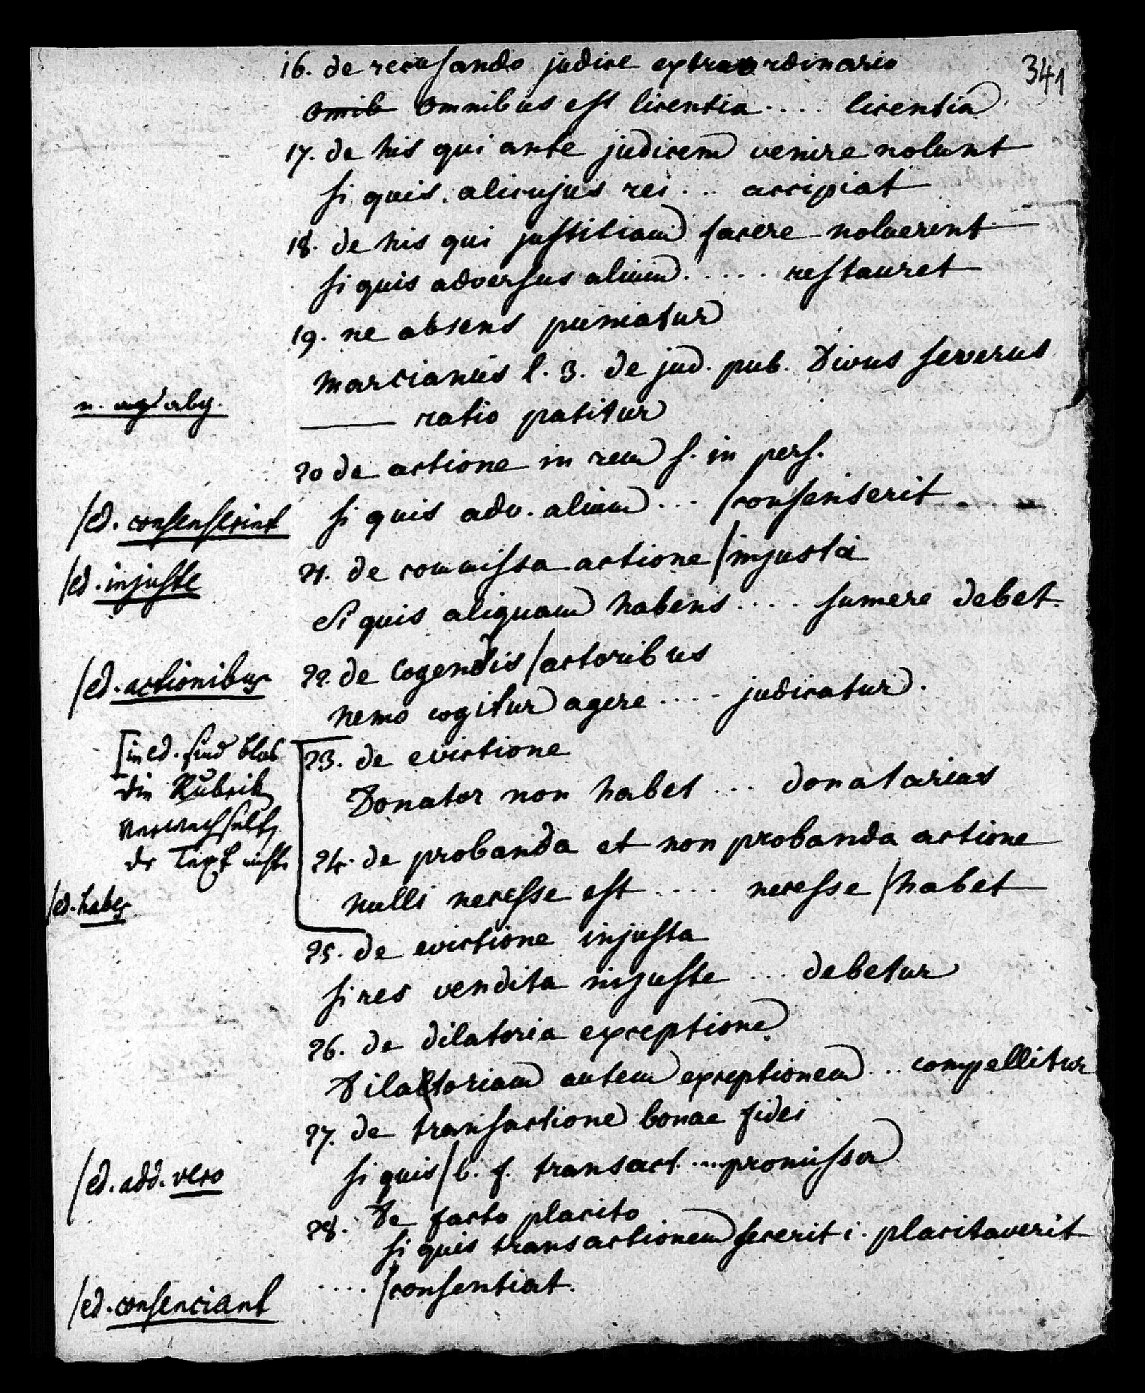 341
16. de recusando judice extraordinario
omib omnibus est licentia .... licentia
17. de his qui ante judicem venire nolunt
si quis alicujus rei ... accipiat
18. de his qui justitiam facere noluerint
si quis adversus alium ..... restauret
19. ne absens puniatur
Marcianus l. 3. de jud. pub. Divus severus
—— ratio patitur
20 de actione in rem s. in pers.
/ed. consenserint
si quis adv. alium ... /consenserit
/ed. injuste
21. de commissa actione /injusta
Si quis aliquam habens .... sumere debet.
/ed. actionibus
22. de cogendis /actoribus
nemo cogitur agere .... judicatur.
[in ed. sind blos
die Rubriken
verwechselt,
der Text nicht
23. de evictione
Donator non habet ... donatarius
24. de probanda et non probanda actione
/ed. habes
nulli necesse est .... necesse /habet
25. de evictione injusta
si res vendita injuste ... debetur
26. de dilatoria exceptione
Dilatoriam autem exceptionem ... compellitur
27. de transactione bonae fidei
/ed. add. vero
si quis /b. f. transact. ... promissa
28. De facto placito
si quis transactionem fecerit i. placitaverit
/ed. consenciant
.... /consentiat.